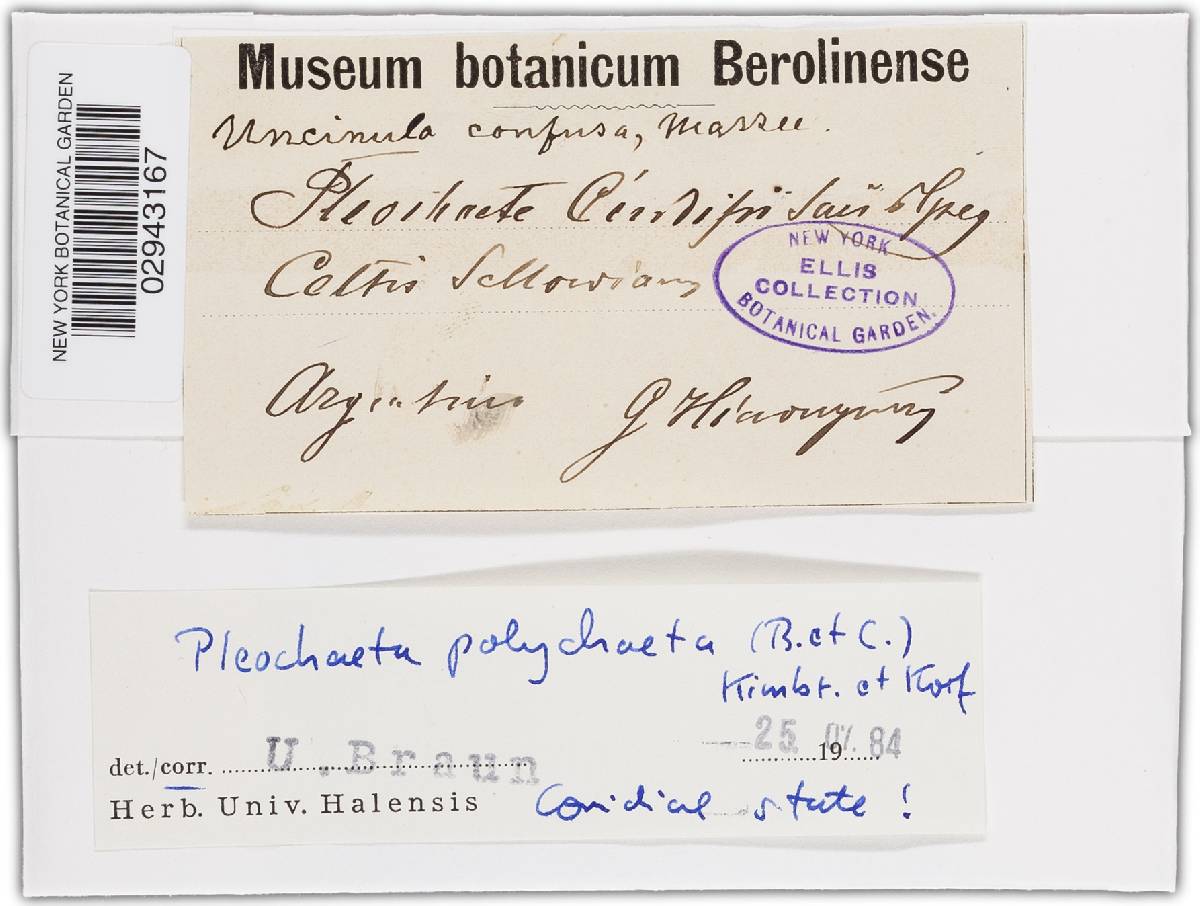 NEW YORK BOTANICAL GARDEN
02943167
Museum botanicum Berolinense
Uncinula confusa, Massee.
Pleochaete Curtisii Sacc & Speg
Celtis Sellowiana
NEW YORK
ELLIS
COLLECTION
BOTANICAL GARDEN.
Argentina G Hieronymus
Pleochaeta polychaeta (B. et C.)
Kimbr. et Korf
25. 07. 1984
det./corr. U. Braun
Herb. Univ. Halensis Conidial state !